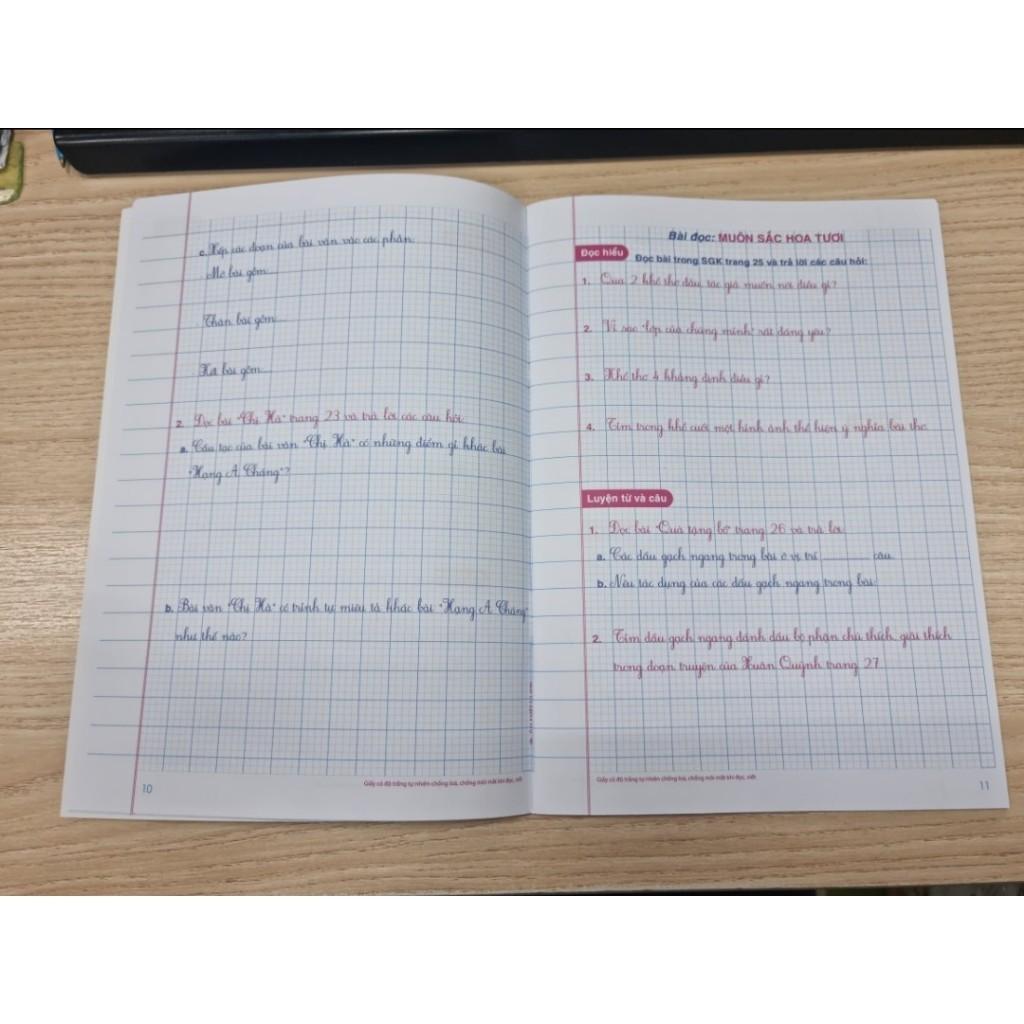 c. Xếp các đoạn của bài văn vào các phần:
Mở bài gồm:...
Thân bài gồm:...
Kết bài gồm:...
2. Đọc bài "Chị Hà" trang 23 và trả lời các câu hỏi:
a. Cấu tạo của bài văn "Chị Hà" có những điểm gì khác bài
"Hạng A Cháng"?
b. Bài văn "Chị Hà" có trình tự miêu tả khác bài "Hạng A Cháng"
như thế nào?
Giấy có độ trắng tự nhiên chống loá, chống mỏi mắt khi đọc, viết
10
Bài đọc: MUÔN SẮC HOA TƯƠI
Đọc hiểu
Đọc bài trong SGK trang 25 và trả lời các câu hỏi:
1. Qua 2 khổ thơ đầu, tác giả muốn nói điều gì?
2. Vì sao "lớp của chúng mình" rất đáng yêu?
3. Khổ thơ 4 khẳng định điều gì?
4. Tìm trong khổ cuối một hình ảnh thể hiện ý nghĩa bài thơ.
Luyện từ và câu
1. Đọc bài "Quà tặng bố" trang 26 và trả lời:
a. Các dấu gạch ngang trong bài ở vị trí ______ câu.
b. Nêu tác dụng của các dấu gạch ngang trong bài:
2. Tìm dấu gạch ngang đánh dấu bộ phận chú thích, giải thích
trong đoạn truyện của Xuân Quỳnh trang 27.
Giấy có độ trắng tự nhiên chống loá, chống mỏi mắt khi đọc, viết
11